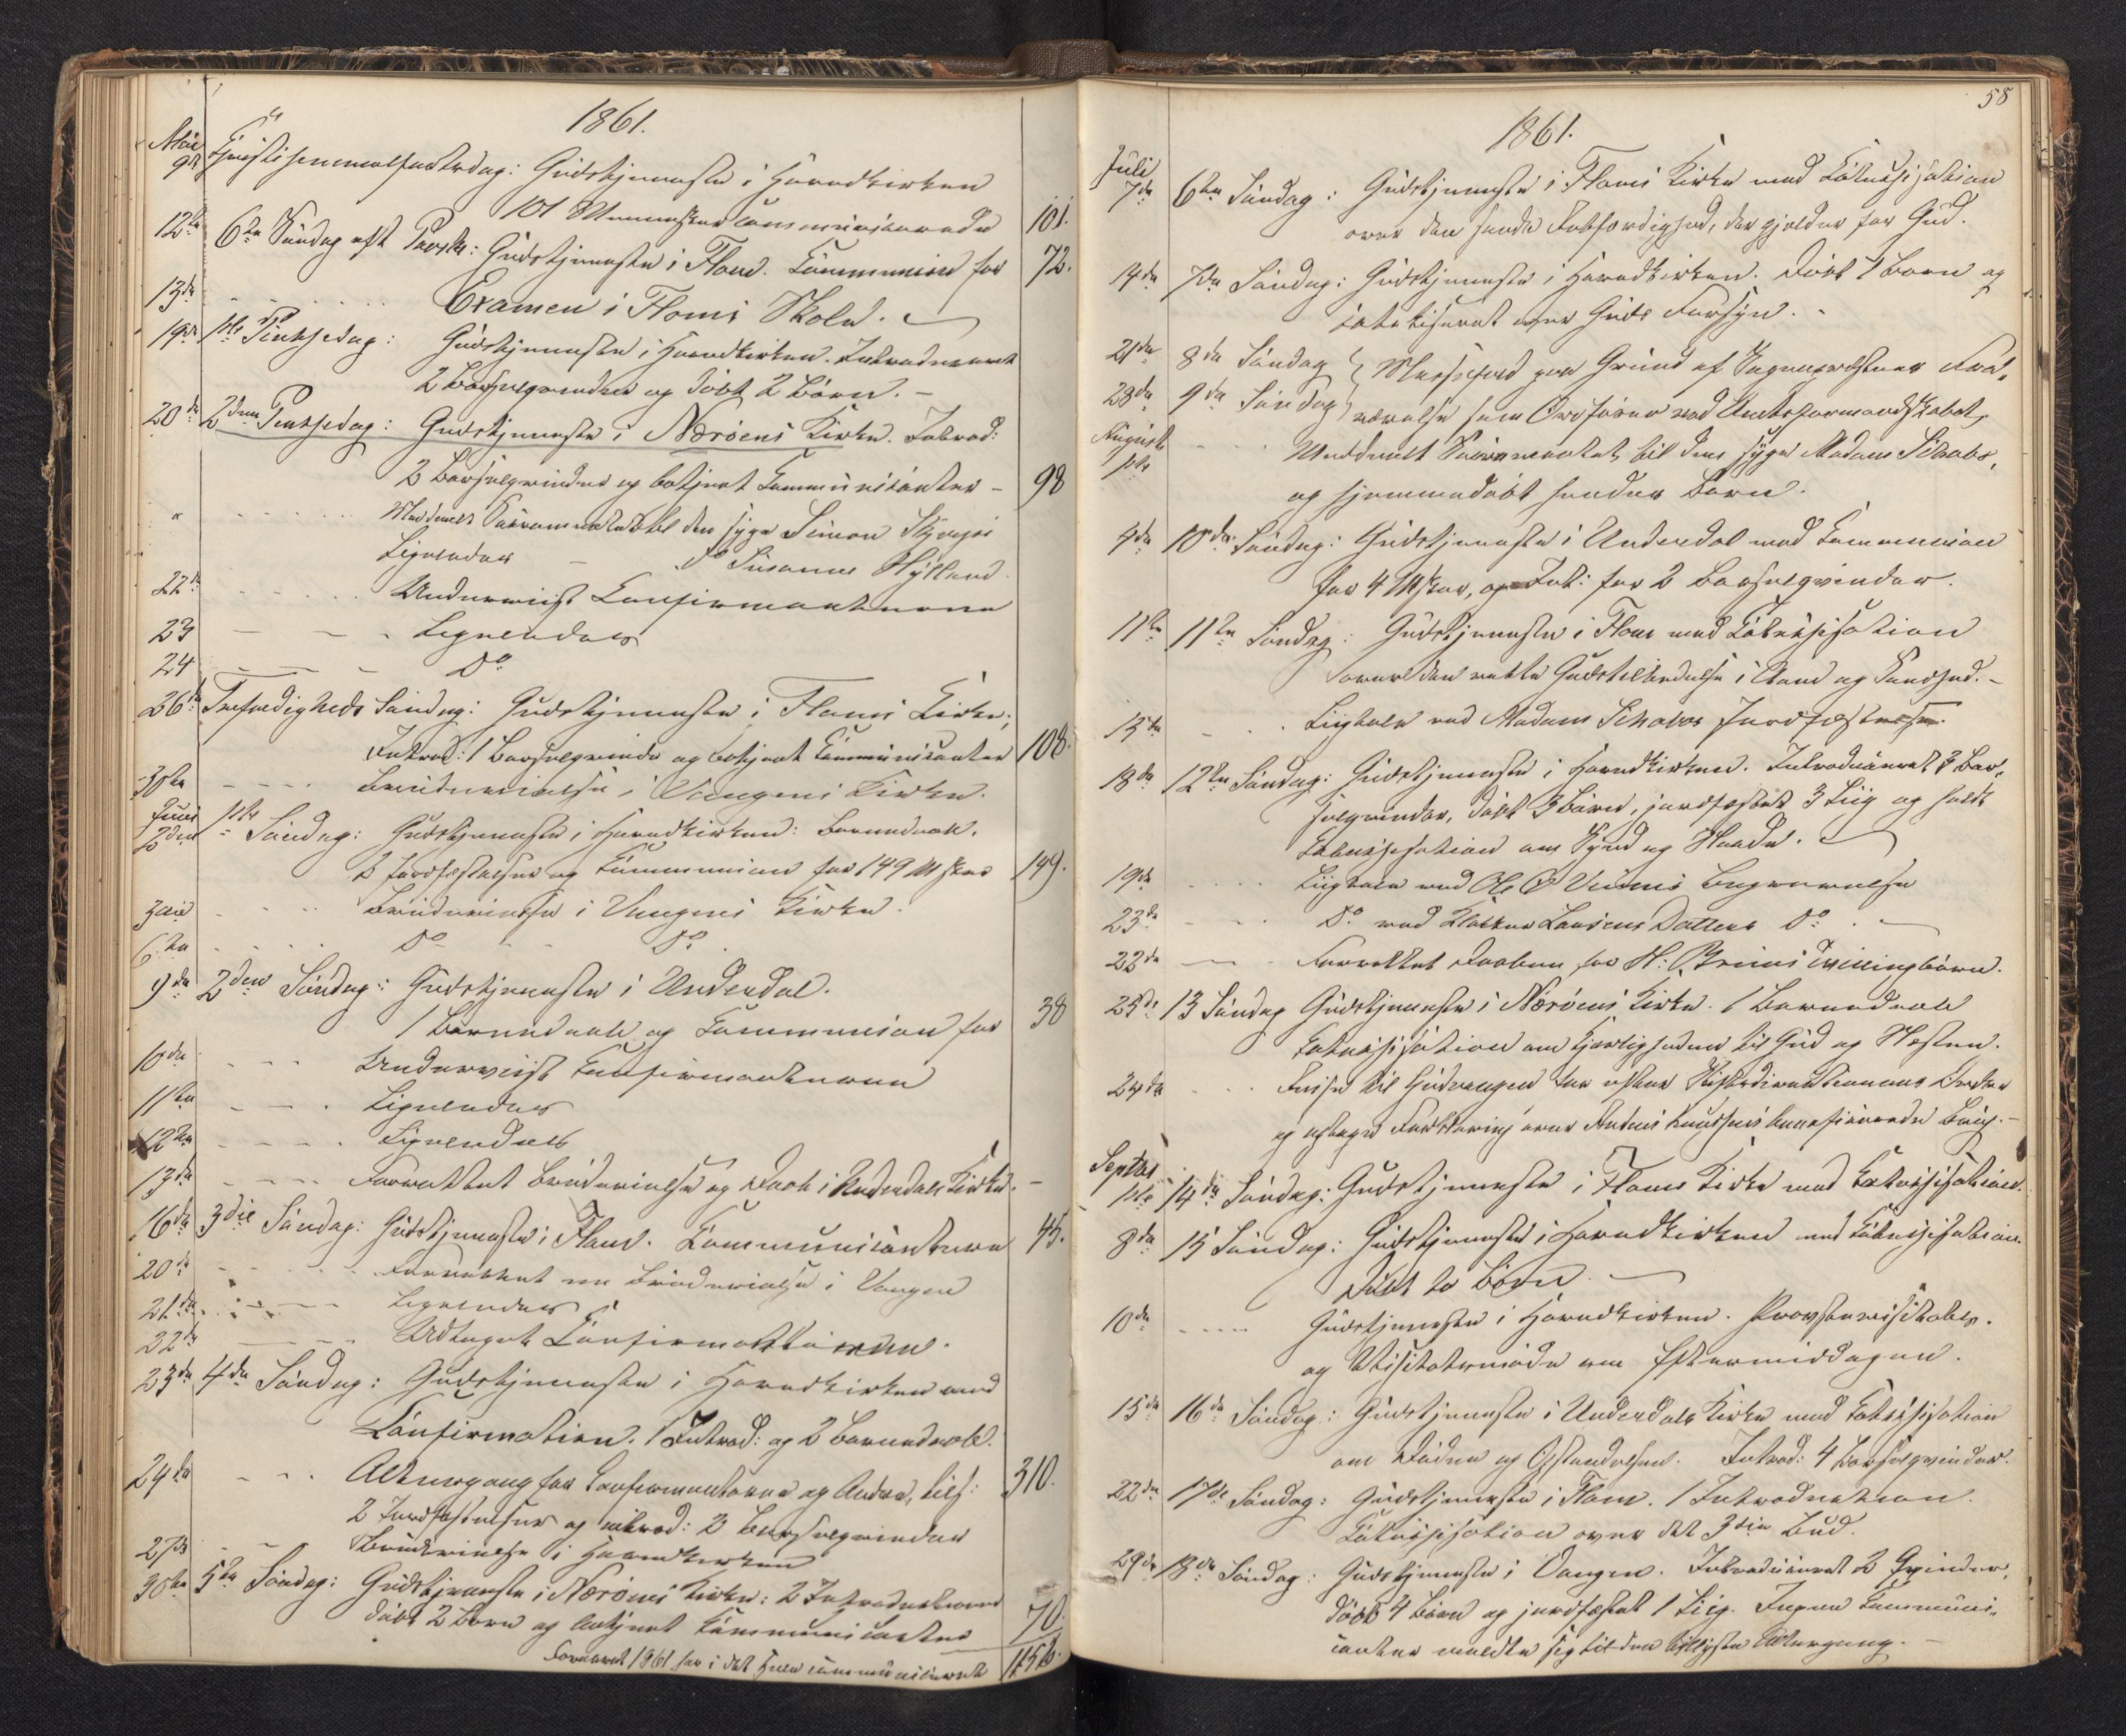 1861.
Mai
9de Christi Himmelfartsdag: Gudstjeneste i Hovedkirken
101 Mennesker communicerede 101.
12te 6te Søndag eft Paaske: Gudstjeneste i Flaam. Communion for 72.
13de Examen i Flams Skole.
19de 1ste Pintsedag: Gudstjeneste i Hovedkirken. Introduceret
2 Barselqvinder og døbt 2 Børn. –
20de 2den Pintsedag: Gudstjeneste i Nærøens Kirke. Introd:
2 Barselqvinder og betjent Communicanter – 98
" Meddeelt Sacramentet til den syge Simon
Ligeledes – do Susanne Hylland.
22de Underviist Confirmanterne
23 – – – Ligeledes
24 – – – Do
26de Trefoldigheds Søndag: Gudstjeneste i Flams Kirke;
Introd: 1 Barselqvinde og betjent Communicanter 108.
30te Brudevielse i Vangens Kirke.
Juni
2den 1ste Søndag: Gudstjeneste i Hovedkirken: Barnedaab,
Jordfæstelser og Communion for 149 Msker 149.
3die Brudevielse i Vangens Kirke.
6te Do – – Do.
9de 2den Søndag: Gudstjeneste i Underdal.
1 Barnedaab og Communion for 38
10de Underviist Confirmanterne
11te Ligeledes
12te Ligeledes
13de Forrettet Brudevielse og Daab i Underdals Kirke. –
16de 3die Søndag: Gudstjeneste i Flam. Communicanterne 45.
20de Forrettet en Brudevielse i Vangen
21de Ligeledes
22de Udtaget Confirmanterne.
23de 4de Søndag: Gudstjeneste i Hovedkirken med
Confirmation. 1 Introd: og 2 Barnedaab.
24de Altergang for Confirmanterne og Andre, tils: 310.
2 Jordfæstelser og introd: 2 Barselqvinder
27de Brudevielse i Hovedkirken
30te 5te Søndag: Gudstjeneste i Nærøens Kirke: 2 Introductioner
døbt 2 Børn og betjent Communicanter 70.
Foraaret 1861 har i det Hele communiceret

58
1861.
Juli
7de 6te Søndag: Gudstjeneste i Flams Kirke med Catechisation
over den sande Retfærdighed, der gjelder for Gud.
14de 7de Søndag: Gudstjeneste i Hovedkirken. Døbt 1 Barn og
catechiseret over Guds Forsyn.
21de 8de Søndag } Messefald paa Grund af Sognepræstens Fra-
28de 9de Søndag } værelse som Ordfører ved Amtsformandskabet,
August
1ste Meddeelt Sacramentet til den syge Madam Schabo,
og hjemmedøbt hendes Barn.
4de 10de Søndag: Gudstjeneste i Underdal med Communion
for 4 Msker, og Int: for 2 Barselqvinder.
11te 11te Søndag: Gudstjeneste i Flam med Catechisation
over den rette Gudstilbedelse i Aand og Sandhed. –
15de Liigtale ved Madam Schabos Jordfæstelse.
18de 12te Søndag: Gudstjeneste i Hovedkirken. Introduceret 3 Bar-
selqvinder, døbt 3 Børn, jordfæstet 3 Liig og holdt
Catechisation om Synd og Naade.
19de Liigtale ved Ole O Begravelse
23de Do ved Klokker Datters Do.
22de Forrettet Daaben for H: Tvillingbørn.
25de 13 Søndag Gudstjeneste i Nærøens Kirke. 1 Barnedaab
Catechisation om Kjærligheden til Gud og Næsten.
24de Reise til Gudvangen for efter Stiftsdirectionens Ordre
og optaget Forklaring over
Septbr
1ste 14de Søndag: Gudstjeneste i Flams Kirke med Catechisation.
8de 15 Søndag: Gudstjeneste i Hovedkirken med Catechisation.
Døbt to Børn. –
10de Gudstjeneste i Hovedkirken. Provstevisitats.
og Visitatsmøde om Eftermiddagen.
15de 16de Søndag: Gudstjeneste i Underdals Kirke med Catechisation
om Døden og Opstandelsen. Introd: 4 Barselqvinder.
22de 17de Søndag: Gudstjeneste i Flam. 1 Introduction.
Catechisation over det 3die Bud.
29de 18de Søndag: Gudstjeneste i Vangen. Introduceret 2 Qvinder,
døbt 4 Børn og jordfæstet 1 Liig. Ingen Communi-
canter meldte sig til den Altergang. –